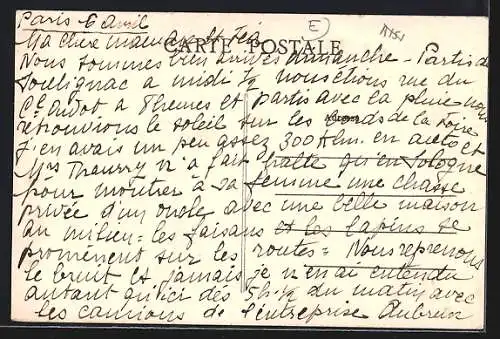 Paris 6 avril
E
A1151
CARTE POSTALE
Ma chère maman et
Nous sommes bien arrivés dimanche - Partis de
Soulignac a midi ½ nous étions rue du
a Thèmes et partis avec la pluie nous
retrouvions le soleil sur les bords de la Loire
J'en avais un peu assez 300 Klm. en auto et
Mrs Thaurry n'a fait halte qu'en Sologne
pour montrer a sa femme une chasse
privée d'un oncle avec une belle maison
au milieu = les faisans et les lapins se
promènent sur les routes = Nous reprenons
le bruit et jamais je n'en ai entendu
autant qu'ici dès 5h ½ du matin avec
les camions de l'entreprise